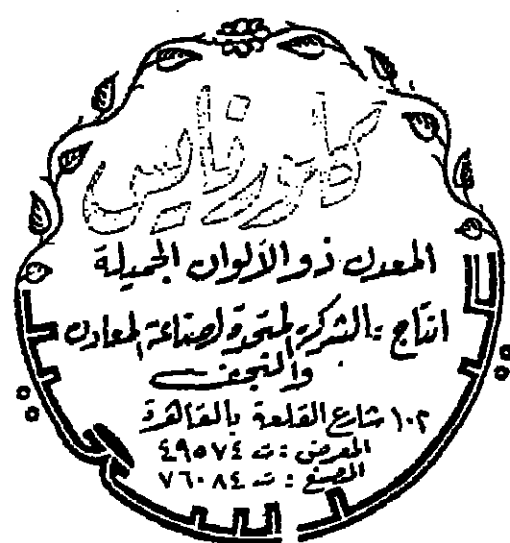 كلورنايس
المعدن ذو الألوان الجميلة
انتاج : الشركة المتحدة لصناعة المعادن
والنجف
١٠٢ شارع القلعة بالقاهرة
المعرض : ت ٤٩٥٧٤
المصنع : ت ٧٦٠٨٤